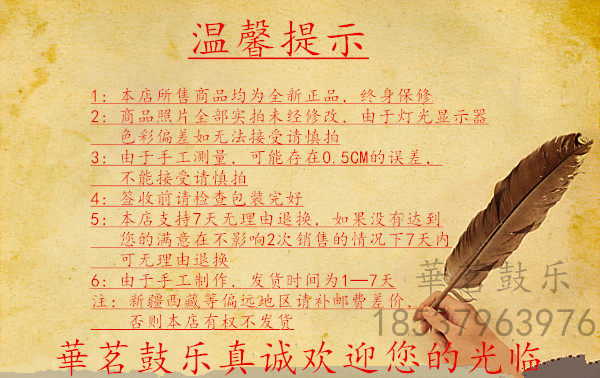 温馨提示
1：本店所售商品均为全新正品，终身保修
2：商品照片全部实拍未经修改，由于灯光显示器
色彩偏差如无法接受请慎拍
3：由于手工测量，可能存在0.5CM的误差，
不能接受请慎拍
4：签收前请检查包装完好
5：本店支持7天无理由退换，如果没有达到
您的满意在不影响2次销售的情况下7天内
可无理由退换
6：由于手工制作，发货时间为1—7天
注：新疆西藏等偏远地区请补邮费差价，
否则本店有权不发货
華茗鼓乐
18537963976
華茗鼓乐真诚欢迎您的光临